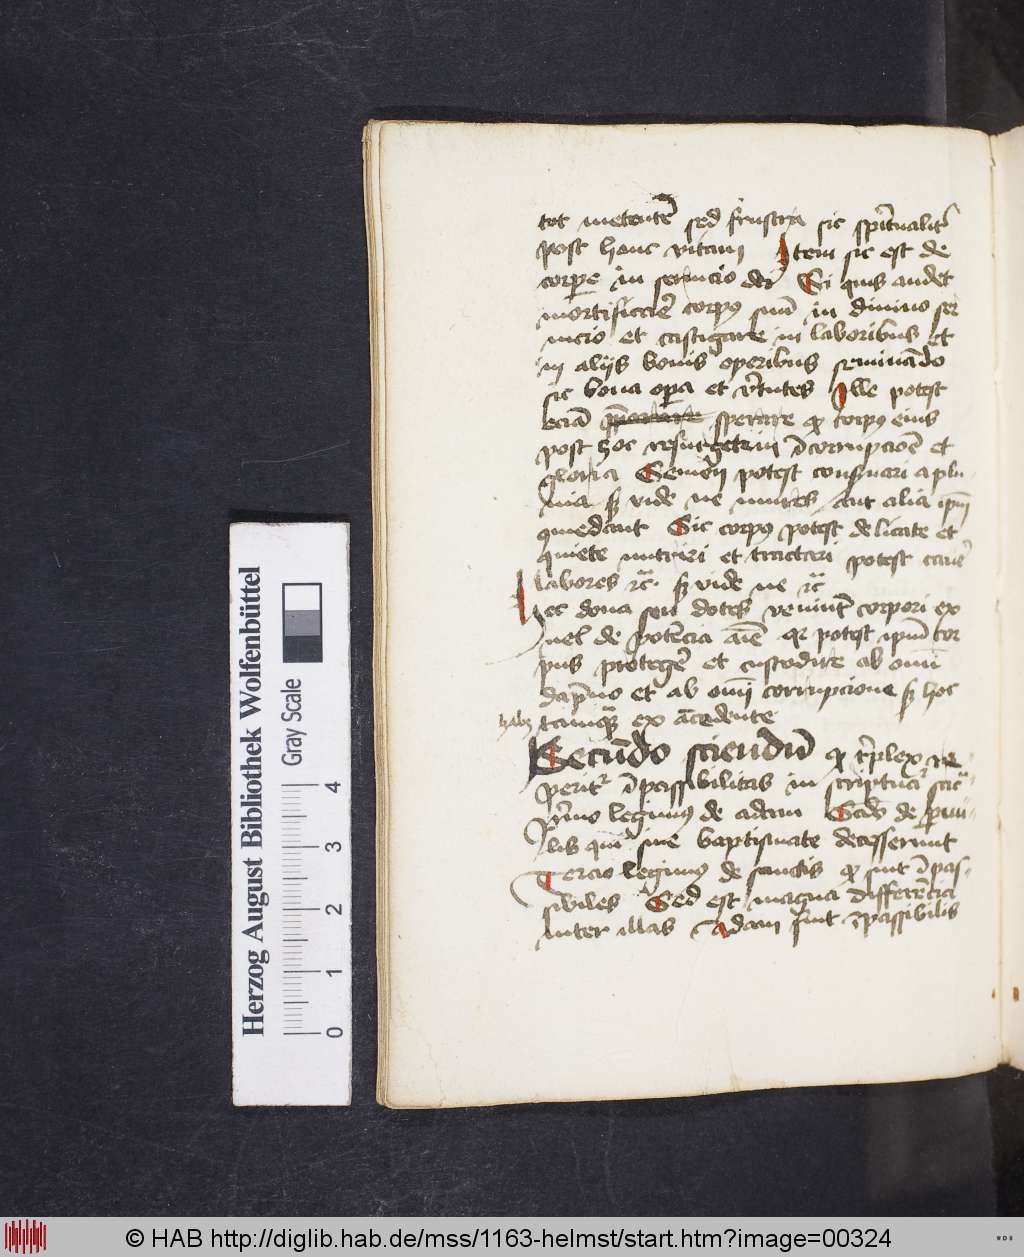 tot metent sed frustra sic spiritualiter
post hanc vitam Item sic est de
corpore in servicio dei Si quis audet
mortificare corpus suum in divino ser
vicio et castigare in laboribus et
in aliis bonis operibus seminando
sic bona opera et virtutes Ille potest
eciam sperare quod corpus eius
post hoc resurget in incorrupcione et
gloria Semen potest conservari a plu
via sed vide ne mures aut alia ipsum
Sic corpus potest delicate et
quiete nutriri et tractari potest cavere
labores etc. sed vide ne etc
ec dona seu dotes veniunt corpori ex
vel de potencia anime que potest ipsum cor
pus protegere et custodire ab omni
dampno et ab omni corrupcione sed hoc
tamquam ex accidente
Secundo sciendum quod triplex re
peritur inpassibilitas in scriptura sacra
Primo legimus de adam Secundo de
qui sine baptismate decesserunt
Tercio legimus de sanctis quod sint inpas
sibiles Sed est magna differencia
inter illas Adam fuit inpassibilis
Herzog August Bibliothek Wolfenbüttel
Gray Scale
0 1 2 3 4
© HAB http://diglib.hab.de/mss/1163-helmst/start.htm?image=00324